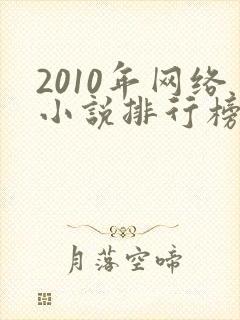 2010年网络
小说排行榜
月落空啼